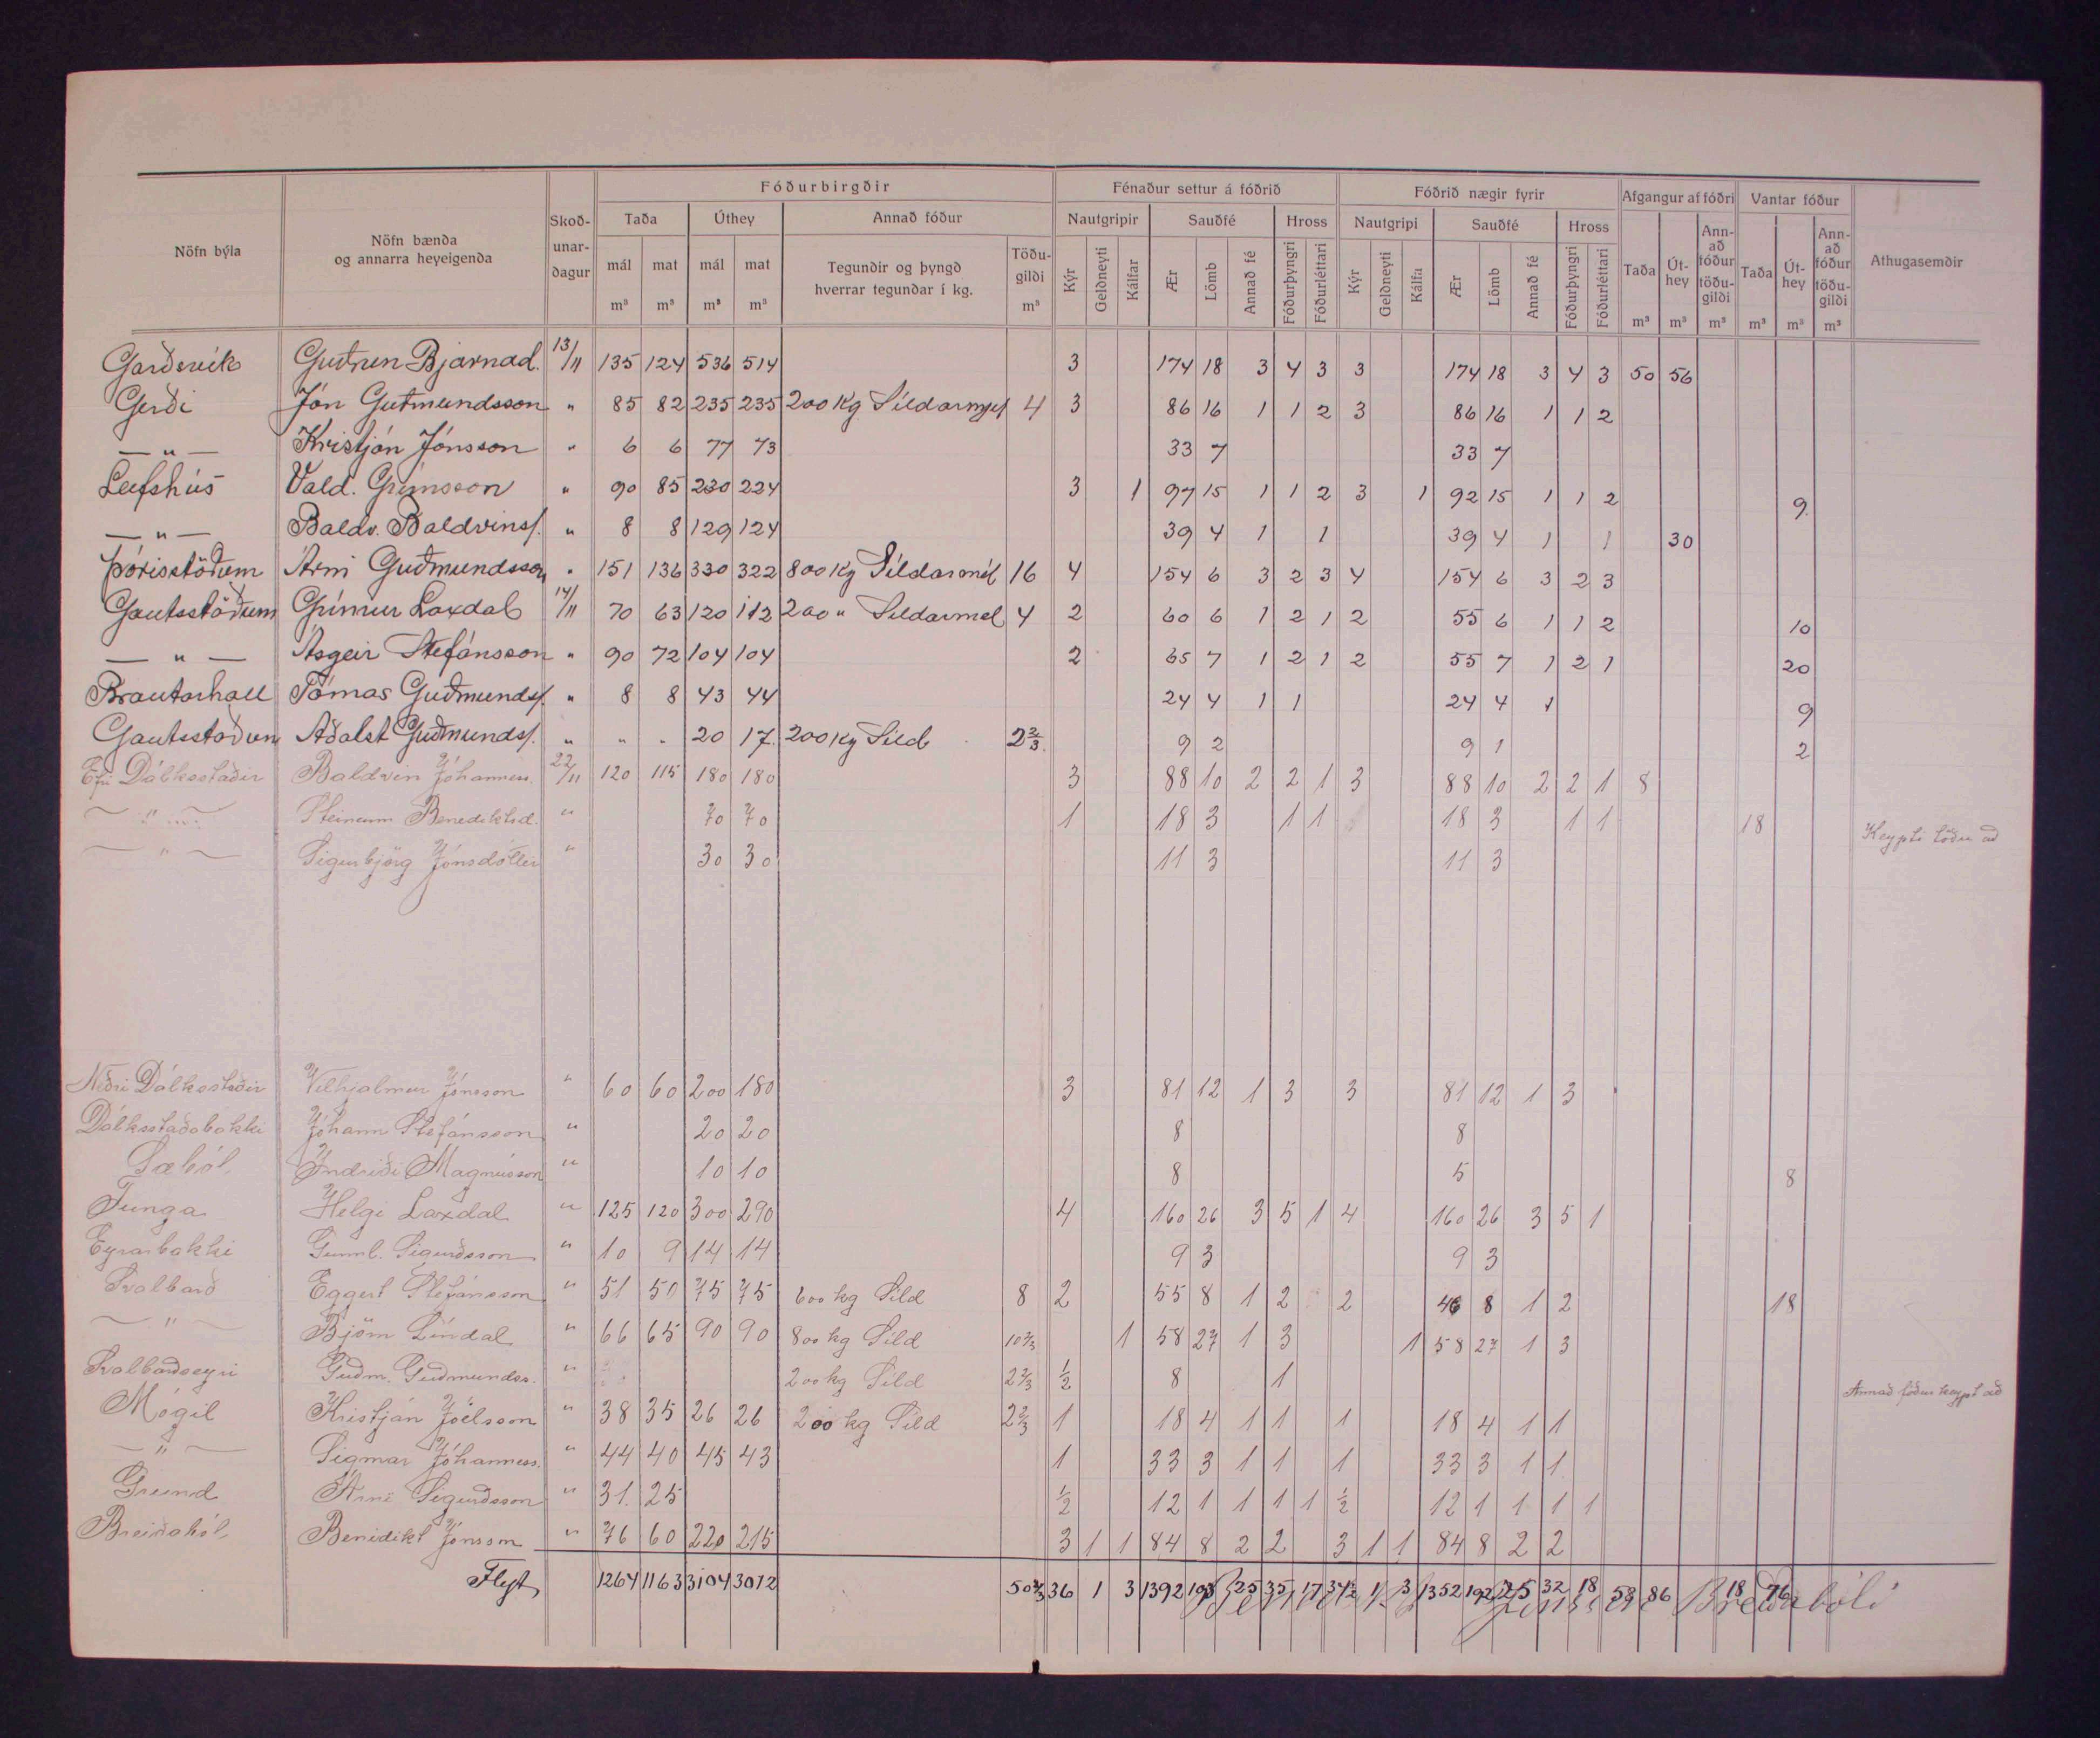 Fóðurbirgðir Fénaður settur á fóðrið Fóðrið nægir fyrir Afgangur af fóðri Vantar fóður
Nöfn býla Nöfn bænda og annarra heyeigenda Skoð-unar-dagur Taða Úthey Annað fóður Nautgripir Sauðfé Hross Nautgripi Sauðfé Hross Taða Út-hey Ann-að fóður töðu-gildi Taða Út-hey Ann-að fóður töðu-gildi Athugasemdir
mál mat mál mat Tegundir og þyngd hverrar tegundar í kg. Töðu-gildi Kýr Geldneyti Kálfar Ær Lömb Annað fé Fóðurþyngri Fóðurléttari Kýr Geldneyti Kálfa Ær Lömb Annað fé Fóðurþyngri Fóðurléttari
m³ m³ m³ m³ m³ m³ m³ m³ m³ m³ m³
Garðsvík Guðrun Bjarnad. 13/11 135 124 536 514 3 174 18 3 4 3 3 174 18 3 4 3 50 56
Gerði Jón Guðmundsson " 85 82 235 235 200 Kg Síldarmjel 4 3 86 16 1 1 2 3 86 16 1 1 2
— " — Kristján Jónsson " 6 6 77 73 33 7 33 7
Leifshús Vald. Grímsson " 90 85 230 224 3 1 97 15 1 1 2 3 1 92 15 1 1 2 9
— " — Baldv. Baldvinss. " 8 8 129 124 39 4 1 1 39 4 1 1 30
Þórisstöðum Árni Guðmundsson " 151 136 330 322 800 Kg Síldarmél 16 4 154 6 3 2 3 4 154 6 3 2 3
Gautsstöðum Grímur Laxdal 14/11 70 63 120 112 200 " Síldarmel 4 2 60 6 1 2 1 2 55 6 1 1 2 10
— " — Ásgeir Stefánsson " 90 72 104 104 2 65 7 1 2 1 2 55 7 1 2 1 20
Brautarholl Tómas Guðmundss. " 8 8 43 44 24 4 1 1 24 4 1 9
Gautsstöðum Aðalst Guðmundss. " " " 20 17 200 Kg Síld 2 2/3 9 2 9 1 2
Efri Dálksstaðir Baldvin Jóhanness. 22/11 120 115 180 180 3 88 10 2 2 1 3 88 10 2 2 1 8
— " — Steinunn Benediktsd. " 70 70 1 18 3 1 1 18 3 1 1 18 Keypti töðu að
— " — Sigurbjörg Jónsdóttir " 30 30 11 3 11 3
Neðri Dálksstaðir Vilhjalmur Jónsson " 60 60 200 180 3 81 12 1 3 3 81 12 1 3
Dálksstaðabakki Jóhann Stefánsson " 20 20 8 8
Sæból Indriði Magnússon " 10 10 8 5 8
Tunga Helgi Laxdal " 125 120 300 290 4 160 26 3 5 1 4 160 26 3 5 1
Eyrarbakki Gunnl. Sigurðsson " 10 9 14 14 9 3 9 3
Svalbarð Eggert Stefánsson " 51 50 75 75 600 kg Síld 8 2 55 8 1 2 2 46 8 1 2 18
— " — Björn Líndal " 66 65 90 90 800 kg Síld 10 2/3 1 58 27 1 3 1 58 27 1 3
Svalbarðseyri Guðm. Guðmundss. " 200 kg Síld 2 2/3 1/2 8 1 Annað fóður keypt að
Mógil Kristján Jóelsson " 38 35 26 26 200 kg Síld 2 2/3 1 18 4 1 1 1 18 4 1 1
— " — Sigmar Jóhanness. " 44 40 45 43 1 33 3 1 1 1 33 3 1 1
Grund Árni Sigurðsson " 31 25 1/2 12 1 1 1 1 1/2 12 1 1 1 1
Breiðaból Benidikt Jónsson " 76 60 220 215 3 1 1 84 8 2 2 3 1 1 84 8 2 2
Flyt 1264 1163 3104 3012 50 2/3 36 1 3 1392 193 25 35 17 34 1/2 1 3 1352 192 25 32 18 58 86 18 76
Jónsson Breiðabóli